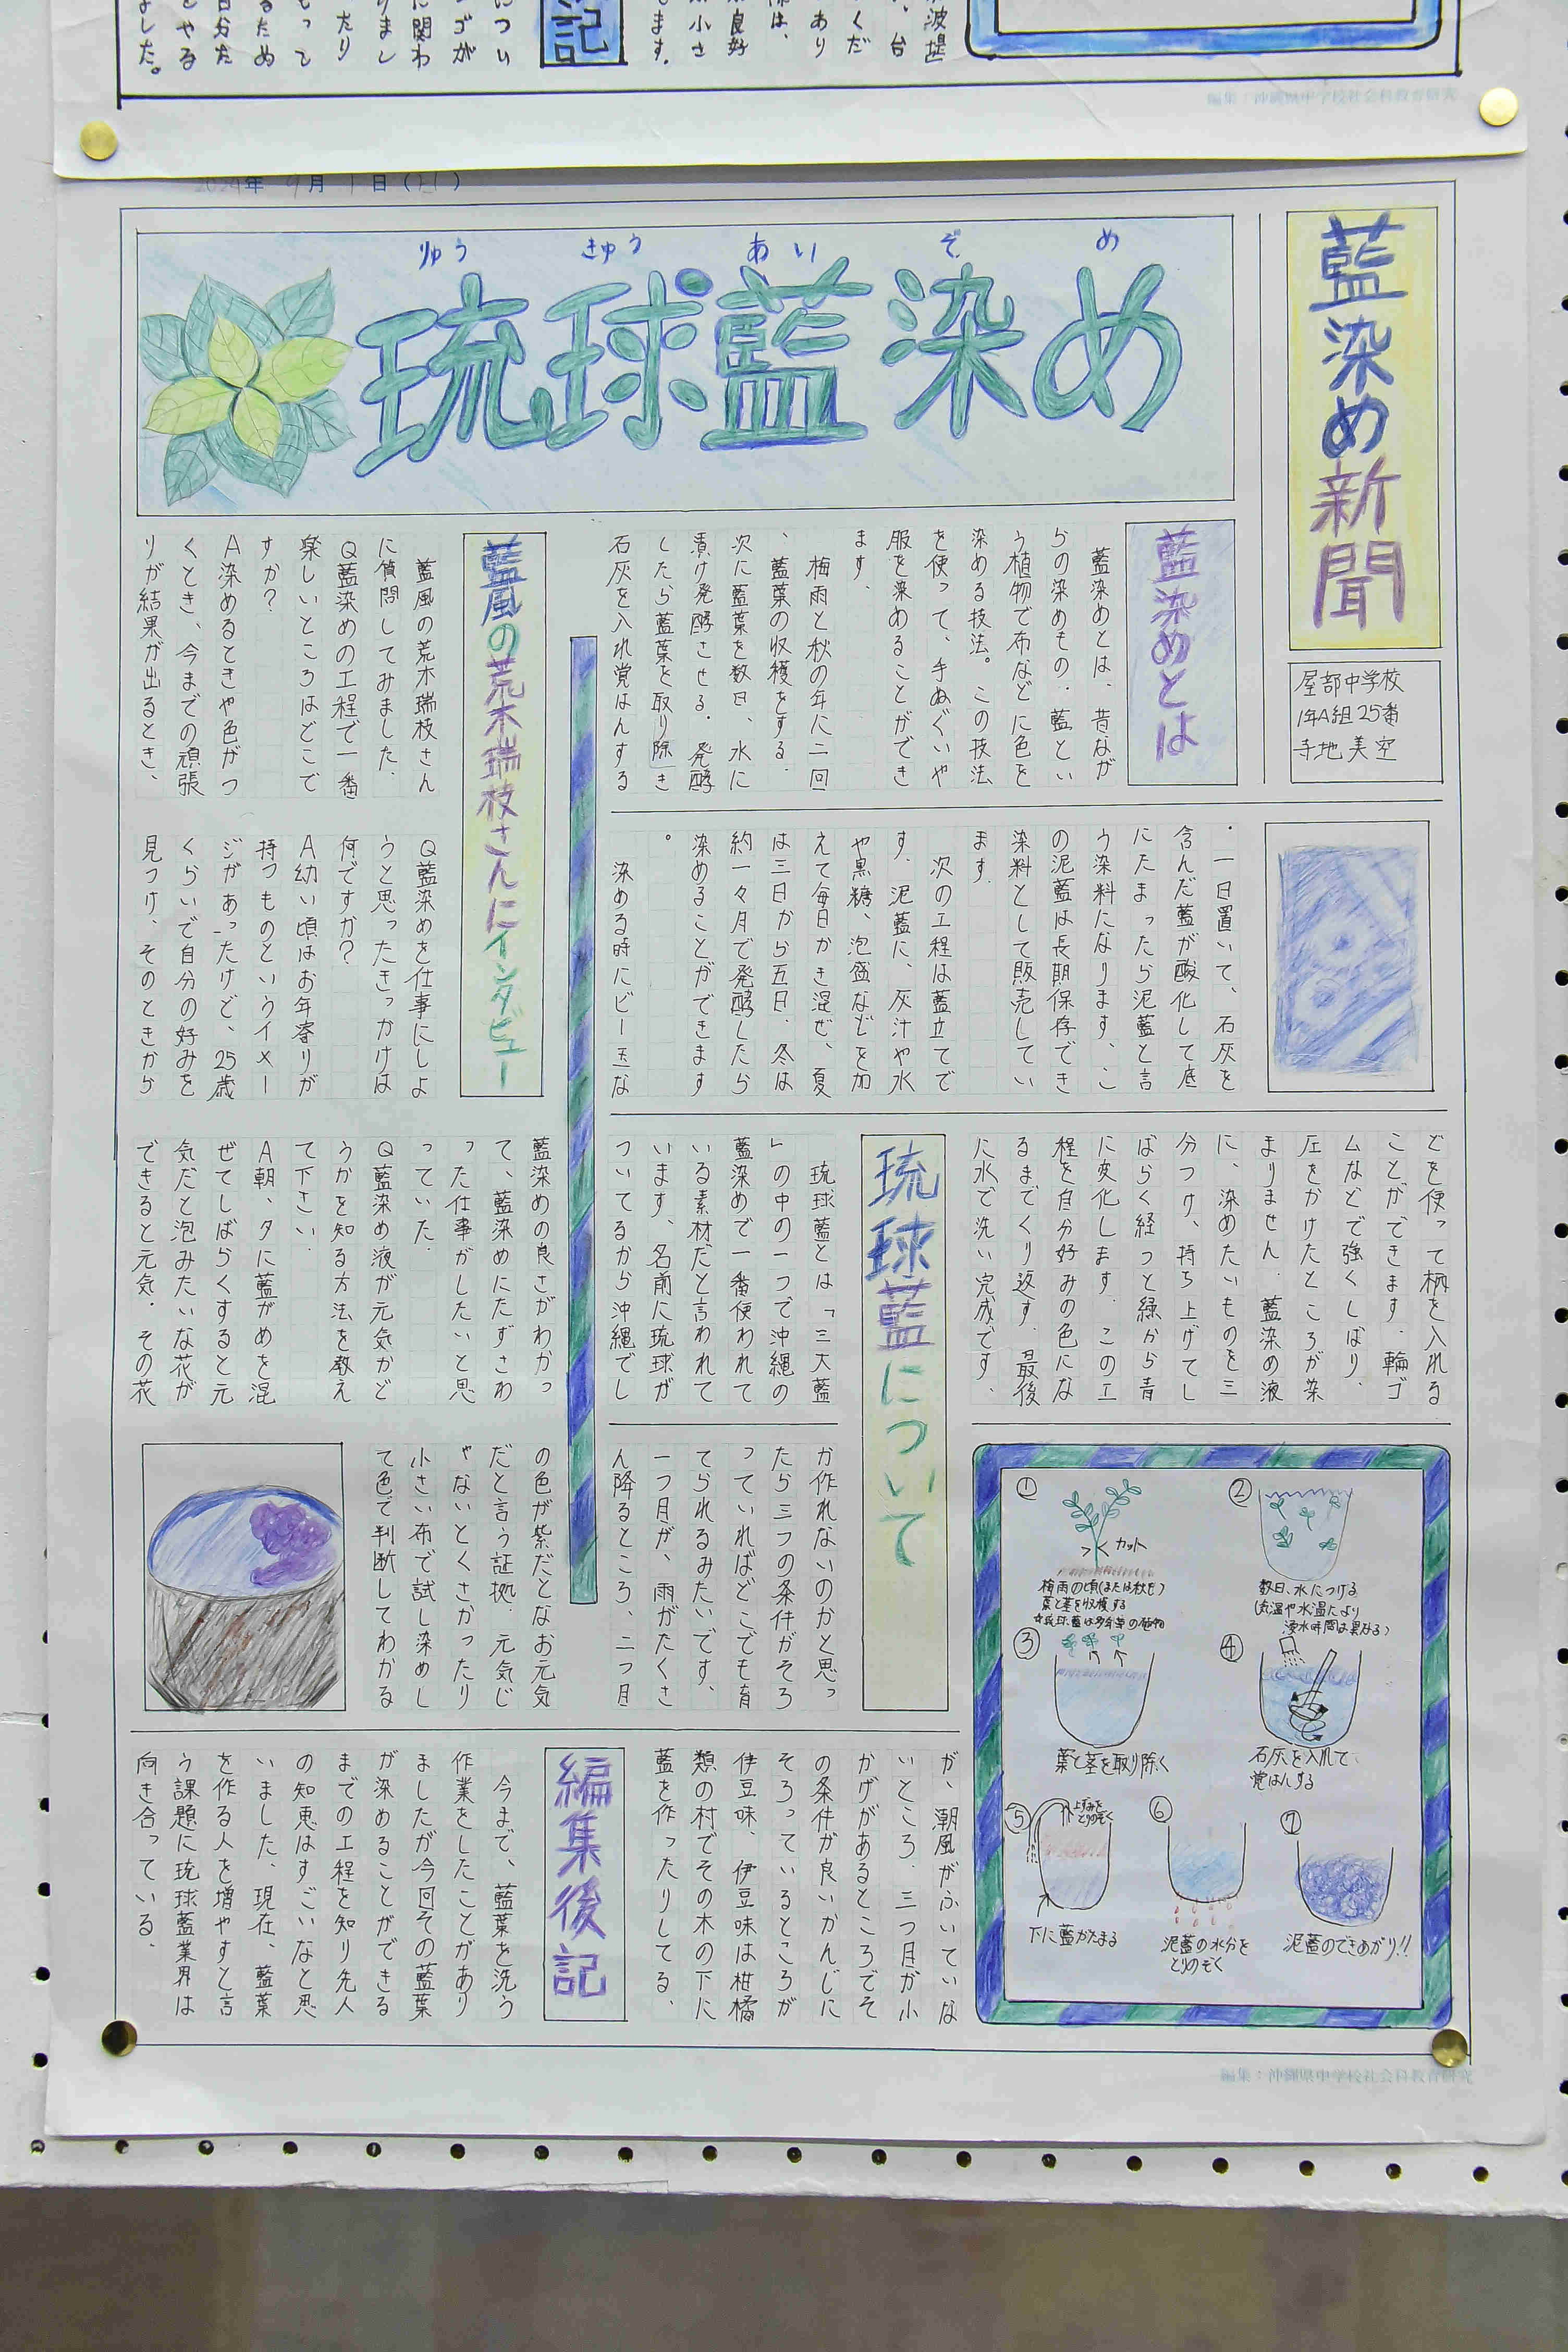 波堤
、台
くだ
あり
は、
良好
小さ
ます。
記
につい
ゴが
に関わ
りまし
たり
って
るため
自分た
とやる
ました。
編集：沖縄県中学校社会科教育研究
年 9月1日（日）
藍染め新聞
屋部中学校
1年A組25番
寺地美空
りゅう きゅう あい ぞ め
琉球藍染め
藍染めとは
藍染めとは、昔なが
らの染めもの。藍とい
う植物で布などに色を
染める技法。この技法
を使って、手ぬぐいや
服を染めることができ
ます。
梅雨と秋の年に二回
、藍葉の収穫をする。
次に藍葉を数日、水に
漬け発酵させる。発酵
したら藍葉を取り除き
石灰を入れ覚はんする
。一日置いて、石灰を
含んだ藍が酸化して底
にたまったら泥藍と言
う染料になります。こ
の泥藍は長期保存でき
染料として販売してい
ます。
次の工程は藍立てで
す。泥藍に、灰汁や水
や黒糖、泡盛などを加
えて毎日かき混ぜ、夏
は三日から五日、冬は
約一ヶ月で発酵したら
染めることができます
。
染める時にビー玉な
どを使って柄を入れる
ことができます。輪ゴ
ムなどで強くしばり、
圧をかけたところが染
まりません。藍染め液
に、染めたいものを三
分つけ、持ち上げてし
ばらく経つと緑から青
に変化します。この工
程を自分好みの色にな
るまでくり返す。最後
に水で洗い完成です。
琉球藍について
琉球藍とは「三大藍
」の中の一つで沖縄の
藍染めで一番使われて
いる素材だと言われて
います。名前に琉球が
ついてるから沖縄でし
か作れないのかと思っ
たら三つの条件がそろ
っていればどこでも育
てられるみたいです。
一つ目が、雨がたくさ
ん降るところ、二つ目
が、潮風がふいていな
いところ。三つ目が小
かげがあるところでそ
の条件が良いかんじに
そろっているところが
伊豆味、伊豆味は柑橘
類の村でその木の下に
藍を作ったりしてる。
①
カット
梅雨の頃(または秋も)
葉と茎を収穫する
☆琉球藍は多年草の植物
②
数日、水につける
(気温や水温により
浸水時間は異なる)
③
葉と茎を取り除く
④
石灰を入れて、
覚はんする
⑤
上ずみを
とりのぞく
下に藍がたまる
⑥
泥藍の水分を
とりのぞく
⑦
泥藍のできあがり!!
藍風の荒木瑞枝さんにインタビュー
藍風の荒木瑞枝さん
に偵問してみました。
Q藍染めの工程で一番
楽しいところはどこで
すか？
A染めるときや色がつ
くとき、今までの頑張
りが結果が出るとき、
Q藍染めを仕事にしよ
うと思ったきっかけは
何ですか？
A幼い頃はお年寄りが
持つものというイメー
ジがあったけど、25歳
くらいで自分の好みを
見つけ、そのときから
藍染めの良さがわかっ
て、藍染めにたずさわ
った仕事がしたいと思
っていた。
Q藍染め液が元気かど
うかを知る方法を教え
て下さい。
A朝、夕に藍がめを混
ぜてしばらくすると元
気だと泡みたいな花が
できると元気。その花
の色が紫だとなお元気
だと言う証拠。元気じ
ゃないとくさかったり
小さい布で試し染めし
て色で判断してわかる
編集後記
今まで、藍葉を洗う
作業をしたことがあり
ましたが今回その藍葉
が染めることができる
までの工程を知り先人
の知恵はすごいなと思
いました。現在、藍葉
を作る人を増やすと言
う課題に琉球藍業界は
向き合っている。
編集：沖縄県中学校社会科教育研究